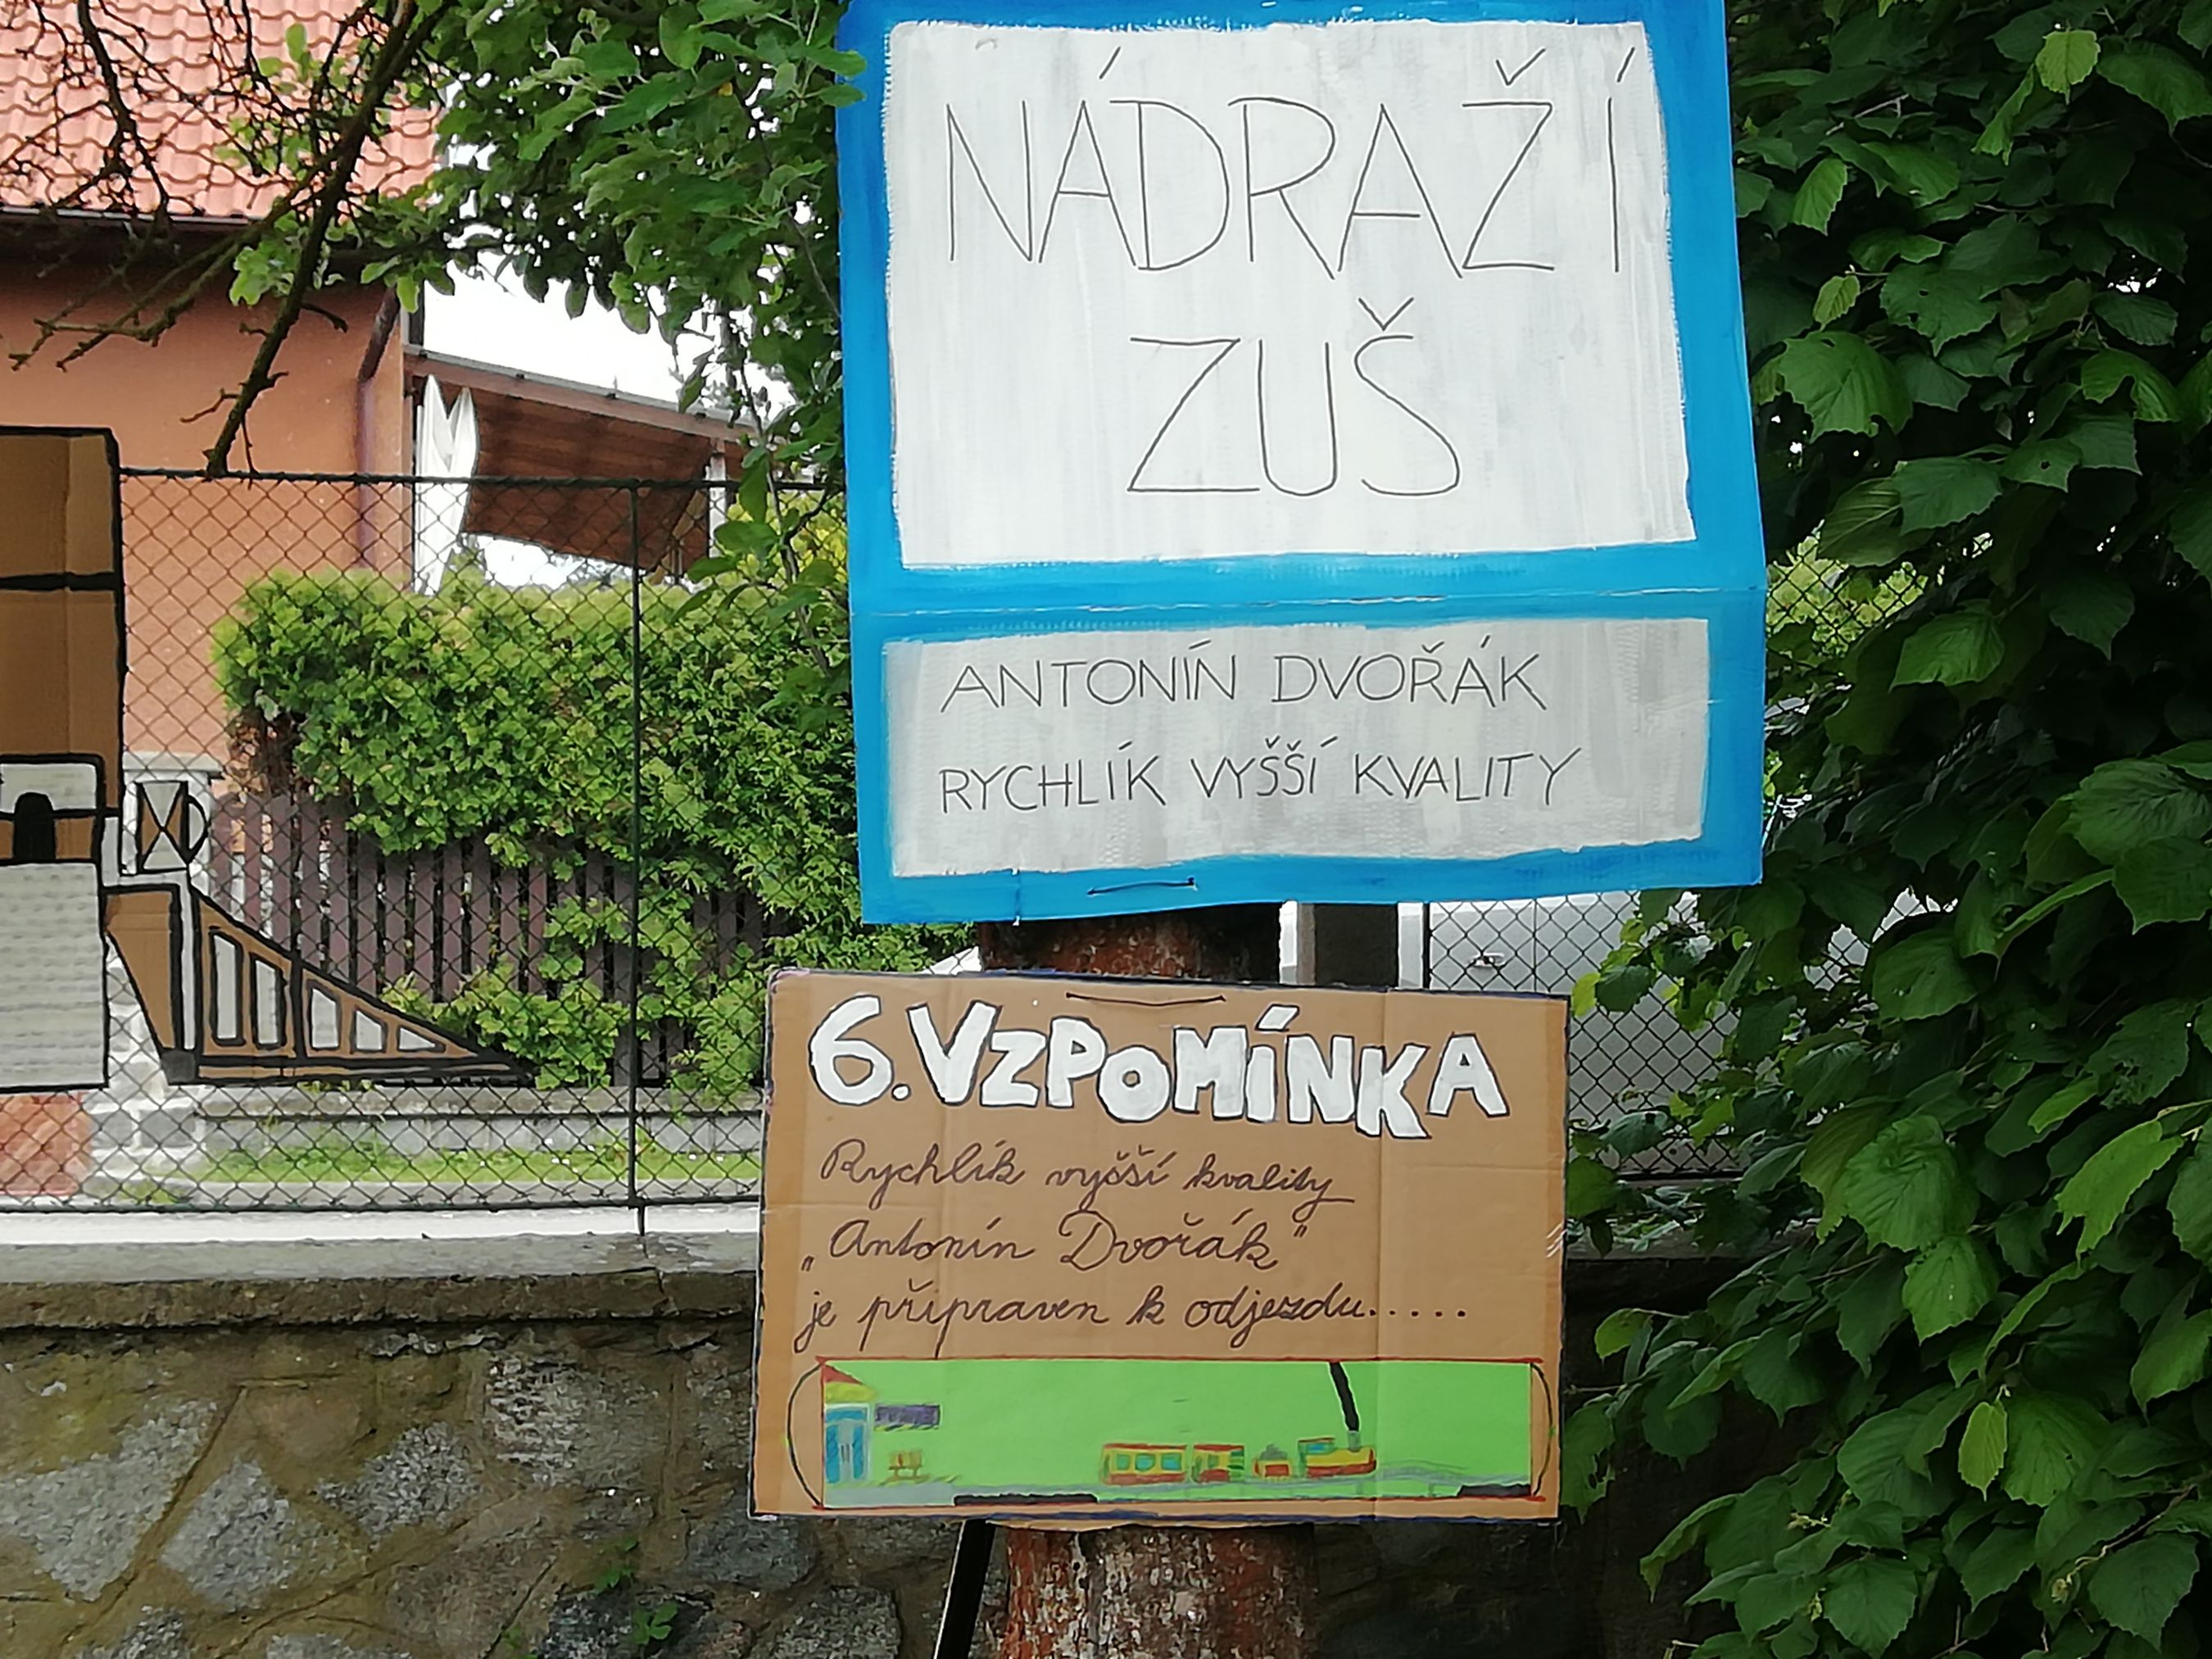 NÁDRAŽÍ
ZUŠ
ANTONÍN DVOŘÁK
RYCHLÍK VYŠŠÍ KVALITY
6. VZPOMÍNKA
Rychlík vyšší kvality
„Antonín Dvořák"
je připraven k odjezdu.....